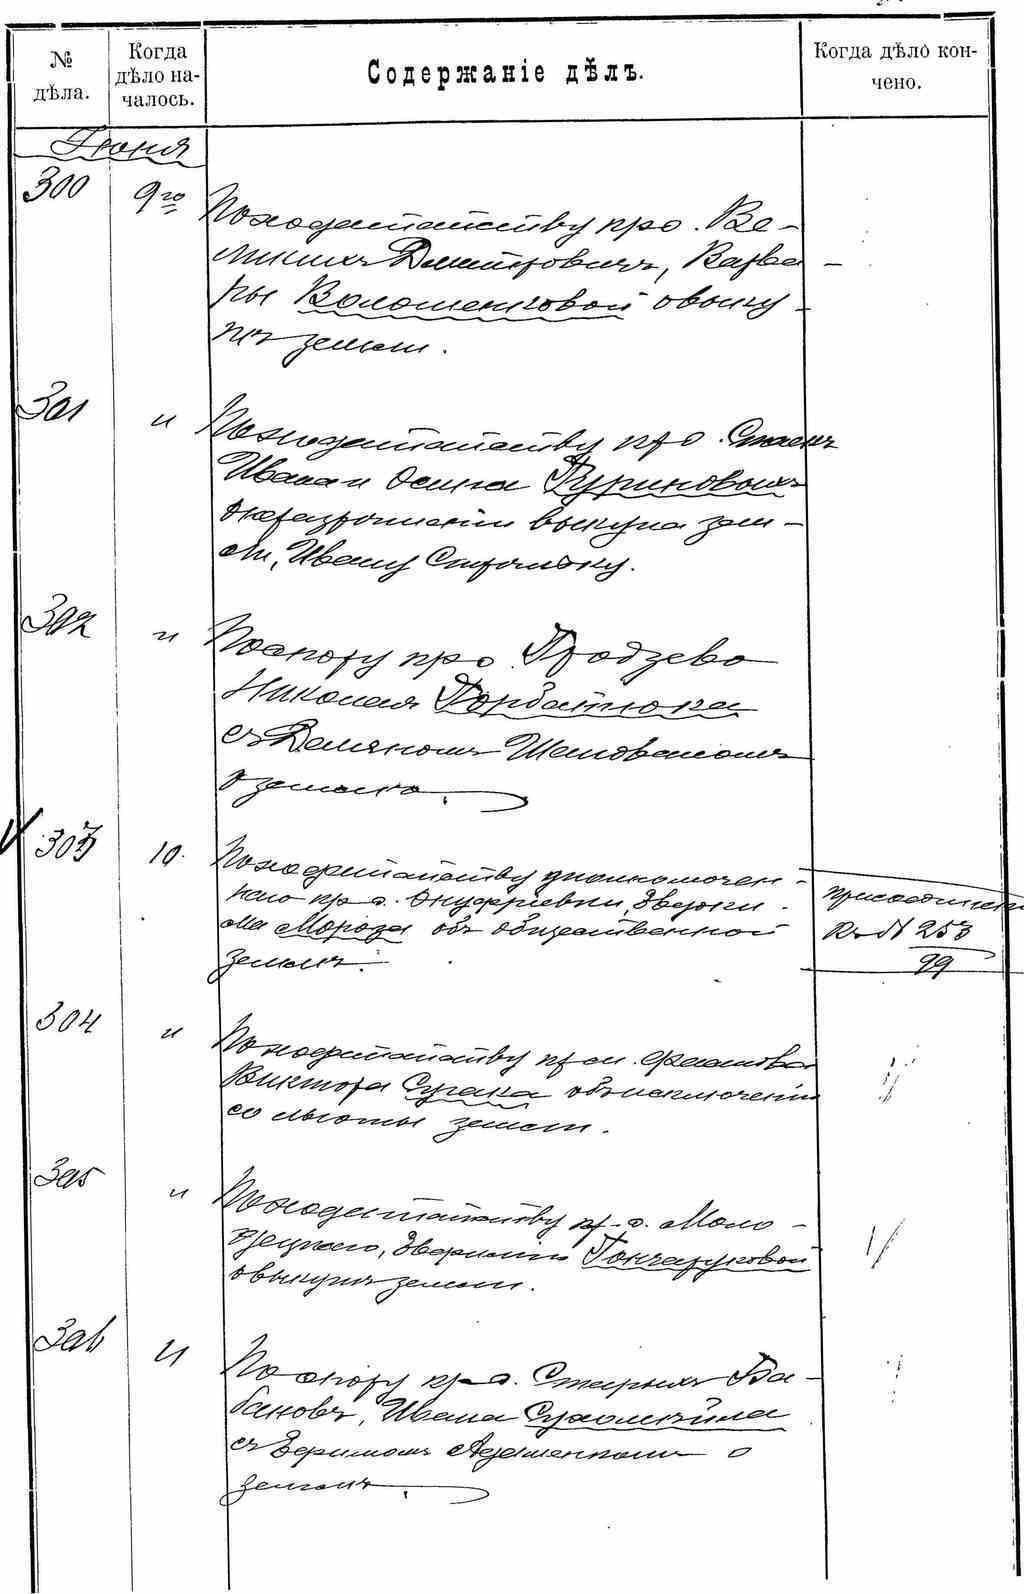 №
дѣла.
Когда
дѣло на-
чалось.
Содержаніе дѣлъ.
Когда дѣло кон-
чено.
Іюня
300 9го По ходатайству кр. с. Ве-
ликихъ Дмитровичъ, Варва-
ры Волошенковой о выку-
пѣ земли.
301 " По ходатайству кр. с.
Ивана и Осипа Куриновыхъ
о неразрѣшеніи выкупа зем-
ли, Ивану
302 " По спору кр. с. Гродзево
Николая Горбатюка
съ Демяномъ Шаповаломъ
о землѣ.
303 10. По ходатайству уполномочен-
наго кр. с. Онуфріевки,
Мороза объ общественной
землѣ.
Присоединено
Къ № 253
99
304 " По ходатайству кр. м.
Виктора Сугака объ исключеніи
со льготы земли.
305 " По ходатайству кр. с. Моло-
децкаго, Гончаруковой
о выкупѣ земли.
306 " По спору кр. с. Старыхъ Ба-
бановъ, Ивана
съ Ефимомъ о
землѣ.